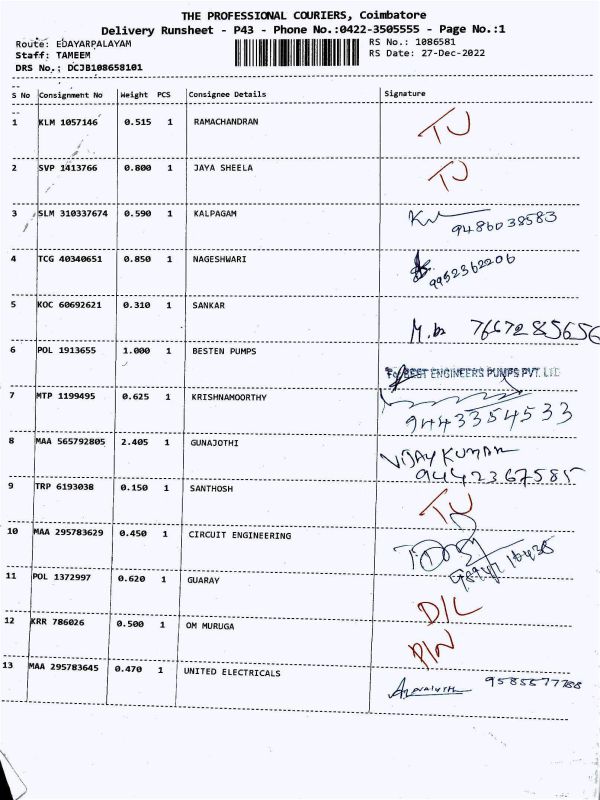 THE PROFESSIONAL COURIERS, Coimbatore
Delivery Runsheet - P43 - Phone No.:0422-3505555 - Page No.:1
Route: EDAYARPALAYAM RS No.: 1086581
Staff: TAMEEM RS Date: 27-Dec-2022
DRS No.: DCJB108658101
S No Consignment No Weight PCS Consignee Details Signature
1 KLM 1057146 0.515 1 RAMACHANDRAN TU
2 SVP 1413766 0.800 1 JAYA SHEELA TU
3 SLM 310337674 0.590 1 KALPAGAM
9486038583
4 TCG 40340651 0.850 1 NAGESHWARI
9952362206
5 KOC 60692621 0.310 1 SANKAR
7667285656
6 POL 1913655 1.000 1 BESTEN PUMPS
For BEST ENGINEERS PUMPS PVT. LTD
7 MTP 1199495 0.625 1 KRISHNAMOORTHY
9443354533
8 MAA 565792805 2.405 1 GUNAJOTHI VIJAY KUMAR
9442367585
9 TRP 6193038 0.150 1 SANTHOSH TU
10 MAA 295783629 0.450 1 CIRCUIT ENGINEERING
11 POL 1372997 0.620 1 GUARAY D/L
12 KRR 786026 0.500 1 OM MURUGA P/N
13 MAA 295783645 0.470 1 UNITED ELECTRICALS